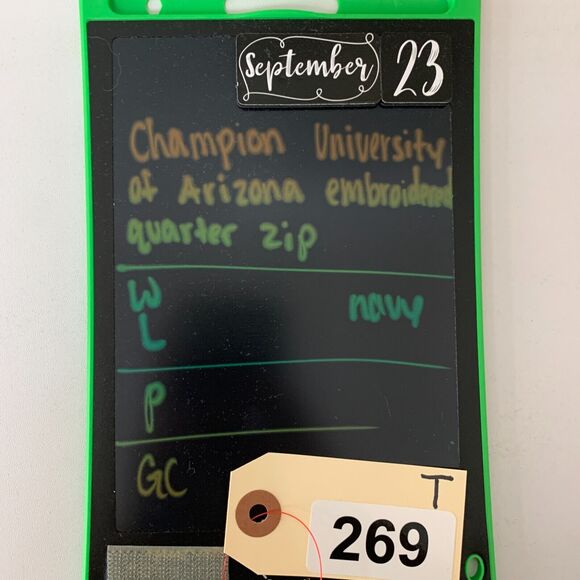 September 23
Champion University
of Arizona embroidered
quarter zip
W navy
L
P
GC
T
269